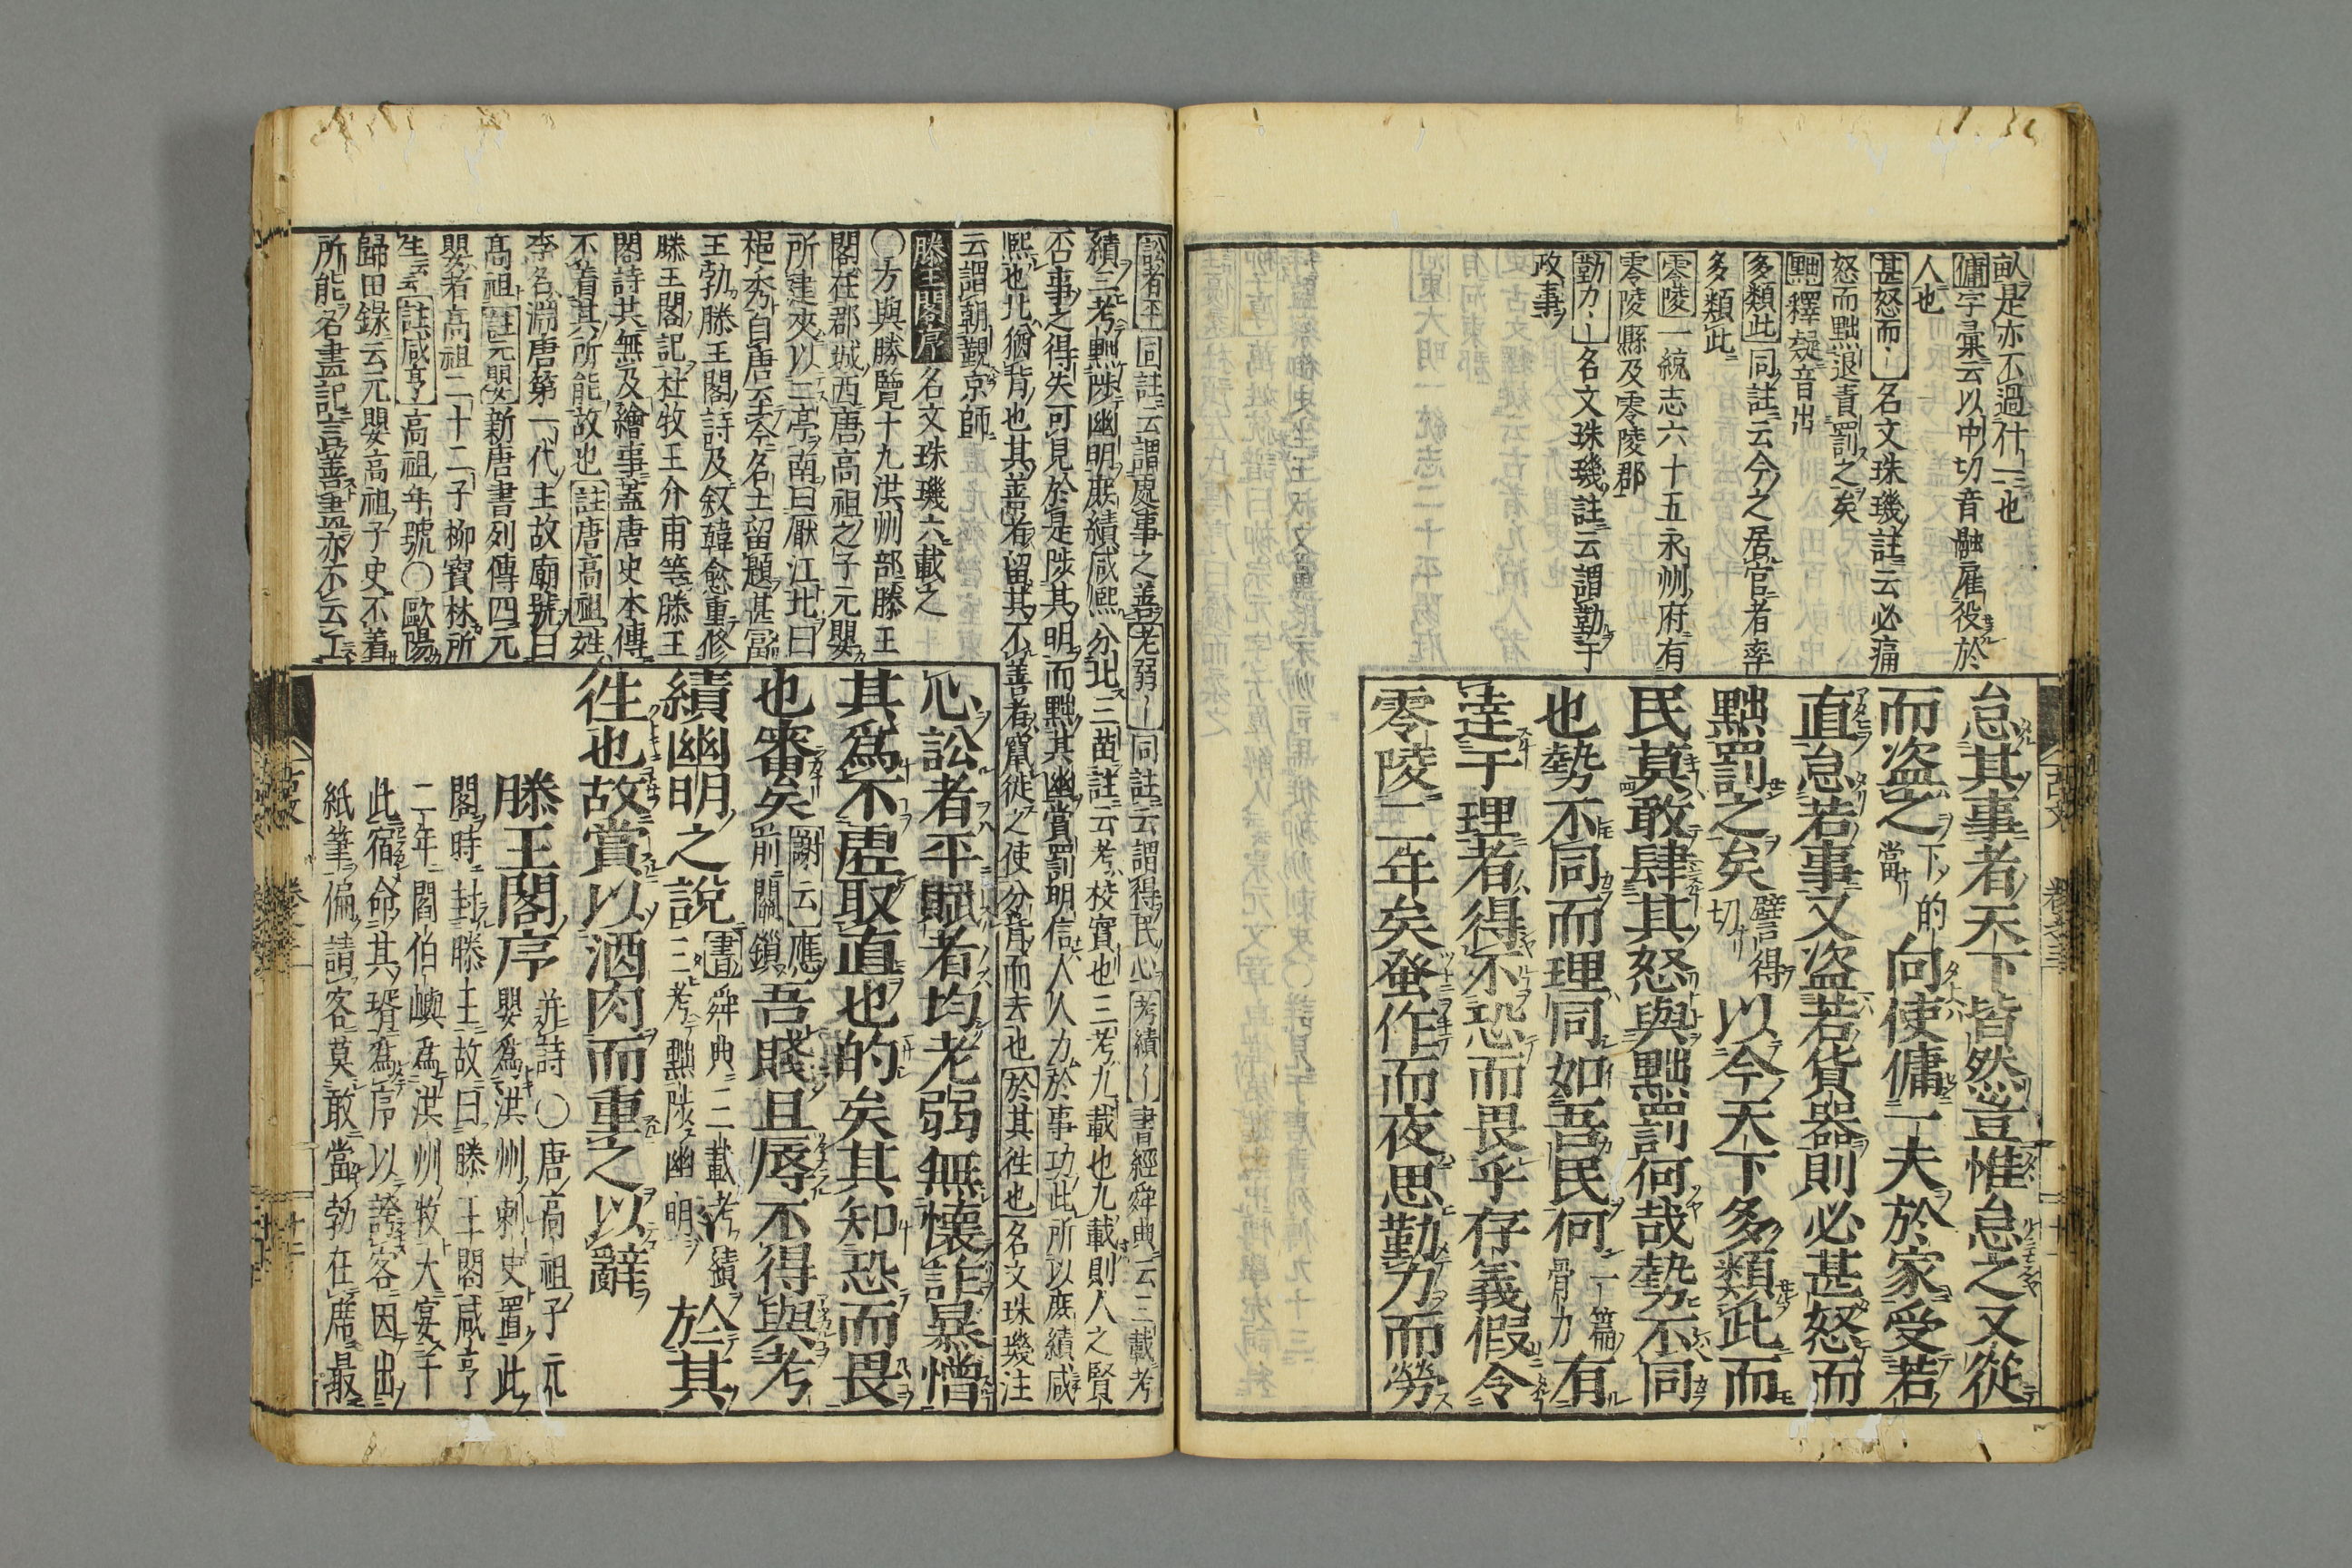 畝是亦不過什一也
傭字彙云以中切音融雇役於
人也
甚怒而〻名文珠璣註云必痛
怒而黜退責罰之矣
黜釋疑音出
多類此同註云今之居官者率
多類此
零陵一統志六十五永州府有
零陵縣及零陵郡
勤力〻名文珠璣註云謂勤于
政事
怠其事者天下皆然豈惟怠之又從
而盗之當下的向使傭一夫於家受若
直怠若事又盗若貨器則必甚怒而
黜罰之矣切譬得以今天下多類此而
民莫敢肆其怒與黜罰何哉勢不同
也勢不同而理同如吾民何骨力一篇有
達于理者得不恐而畏乎存義假令
零陵二年矣蚤作而夜思勤力而勞
訟者平同註云謂處事之善老弱〻同註云謂得民心考績〻書經舜典云三載考
績三考黜陟幽明庶績咸熙分北三苗註云考校實也三考九載也九載則人之賢
否事之得失可見於是陟其明而黜其幽賞罰明信人人力於事功此所以庶績咸
熙也北猶背也其善者留其不善者竄徙之使分背而去也於其徃也名文珠璣注
云謂朝覲京師
滕王閣序名文珠璣六載之
○方輿勝覽十九洪州部滕王
閣在郡城西唐高祖之子元嬰
所建夾以二亭南曰厭江北曰
挹秀自唐至今名士留題甚富
王勃滕王閣詩及叙韓愈重修
滕王閣記杜牧王介甫等滕王
閣詩共無及繪事蓋唐史本傳
不着其所能故也註唐高祖姓
李名淵唐第一代主故廟號曰
高祖註元嬰新唐書列傳四元
嬰者高祖二十二子柳寶林所
生云云註咸亨高祖年號○歐陽
歸田錄云元嬰高祖子史不着
所能名畫記言善畫亦不云工
心訟者平賦者均老弱無懷詐暴憎
其為不虚取直也的矣其知恐而畏
也審矣前關鎖謝云應吾賤且辱不得與考
績幽明之說書舜典三載考績三考黜陟幽明於其
徃也故賞以酒肉而重之以辭
滕王閣序並詩○唐高祖子元嬰為洪州刺史置此
閣時封滕王故曰滕王閣咸亨
二年閻伯嶼為洪州牧大宴于
此宿命其壻為序以誇客因出
紙筆偏請客莫敢當勃在席最